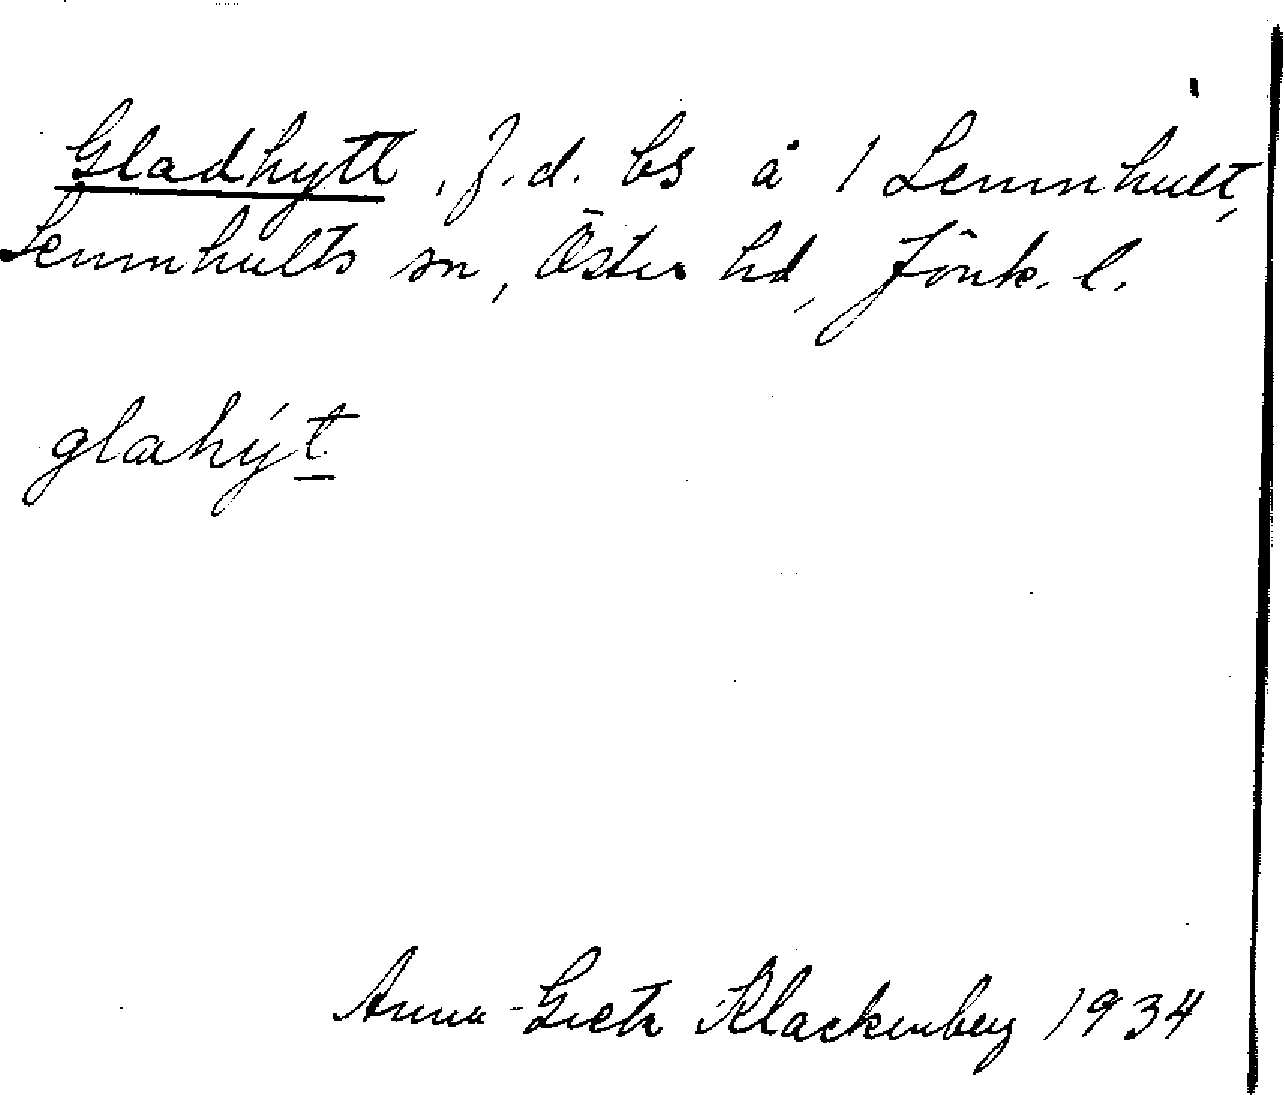 Gladhytt, f.d. bs å 1 Lemnhult,
Lemnhults sn, Öster hd, Jönk. l.
glahýt
Anna-Greta Klackenberg 1934